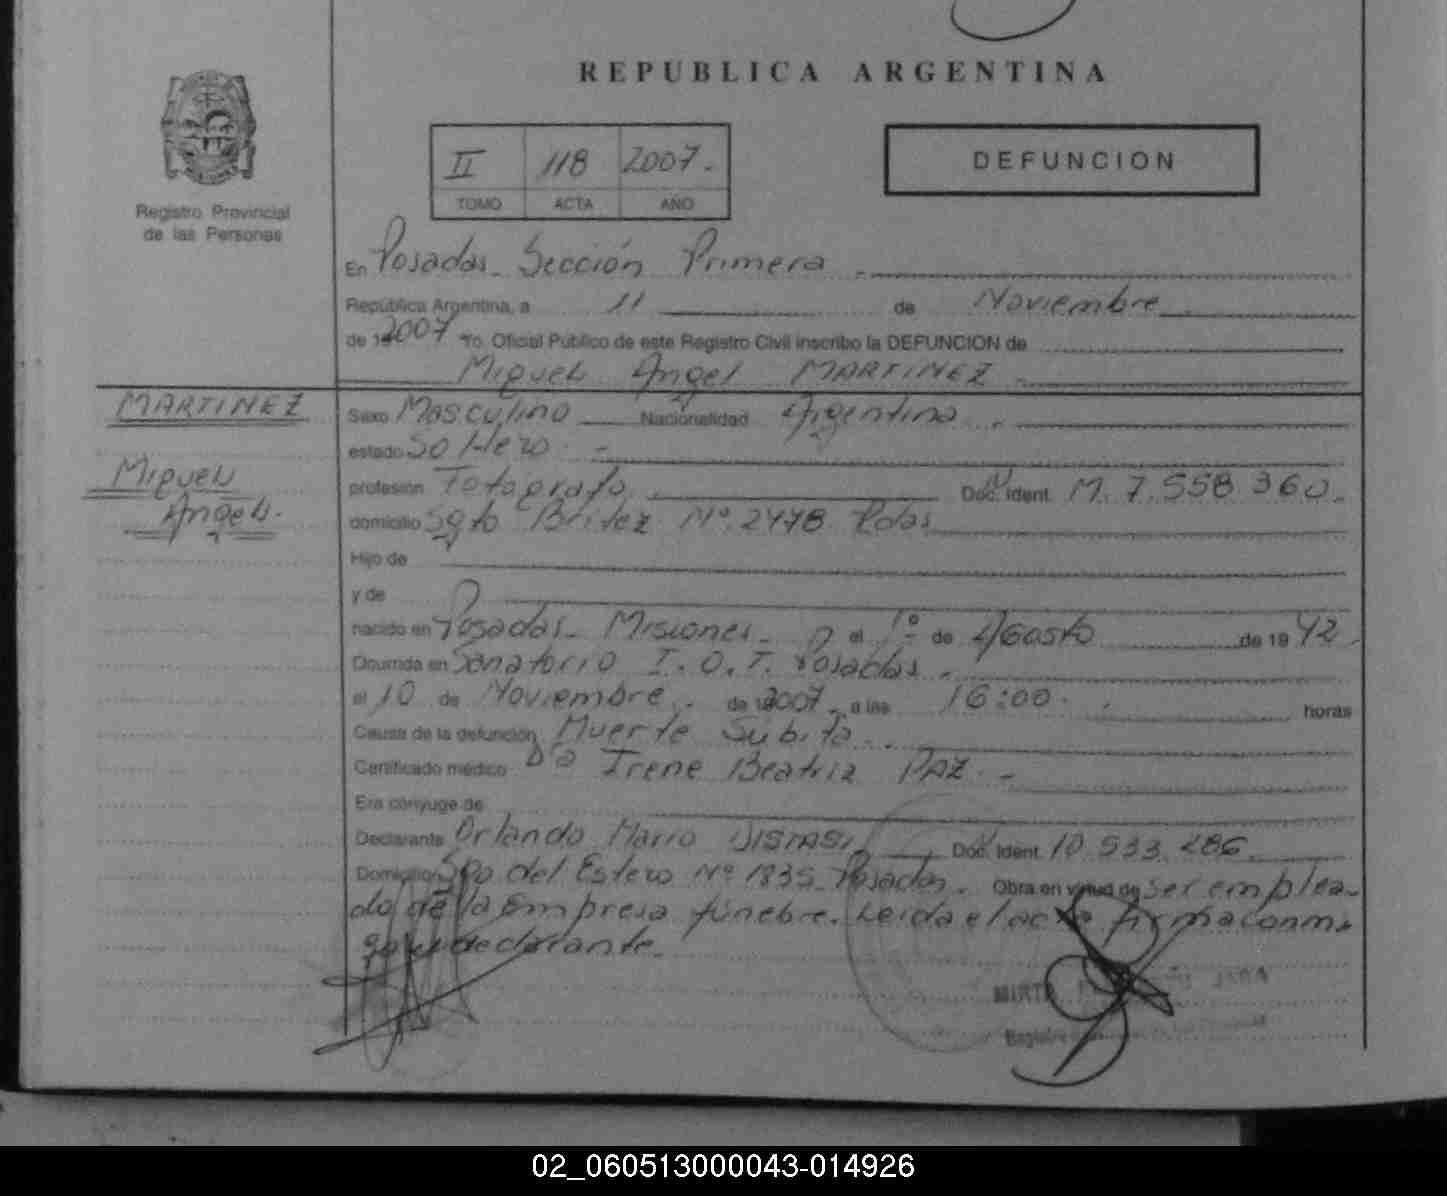 REPUBLICA ARGENTINA
II 118 2007.
TOMO ACTA AÑO
DEFUNCION
Registro Provincial
de las Personas
En Posadas. Sección Primera
República Argentina, a 11 de Noviembre
de 19 2007 Yo. Oficial Público de este Registro Civil inscribo la DEFUNCION de
Miguel Angel MARTINEZ
MARTINEZ
Miguel
Angel.
Sexo Masculino Nacionalidad Argentina
estado Soltero
profesión Fotografo Doc. Ident. M. 7.558.360.
domicilio Sgto Britez Nº 2478 Pdas
Hijo de
y de
nacido en Posadas. Misiones. el 1º de Agosto de 19 42
Ocurrida en Sanatorio I.O.T. Posadas.
el 10 de Noviembre. de 19 2007. a las 16:00. horas
Causa de la defunción Muerte Subita.
Certificado médico Dra Irene Beatriz PAZ.
Era cónyuge de
Declarante Orlando Mario Doc. Ident. 10.533.286
Domicilio Sgo. del Estero Nº 1835 Posadas. Obra en virtud de ser emplea-
do de la Empresa fúnebre. Leida el acta firma conmi
go el declarante.
MIRTA JARA
02_060513000043-014926